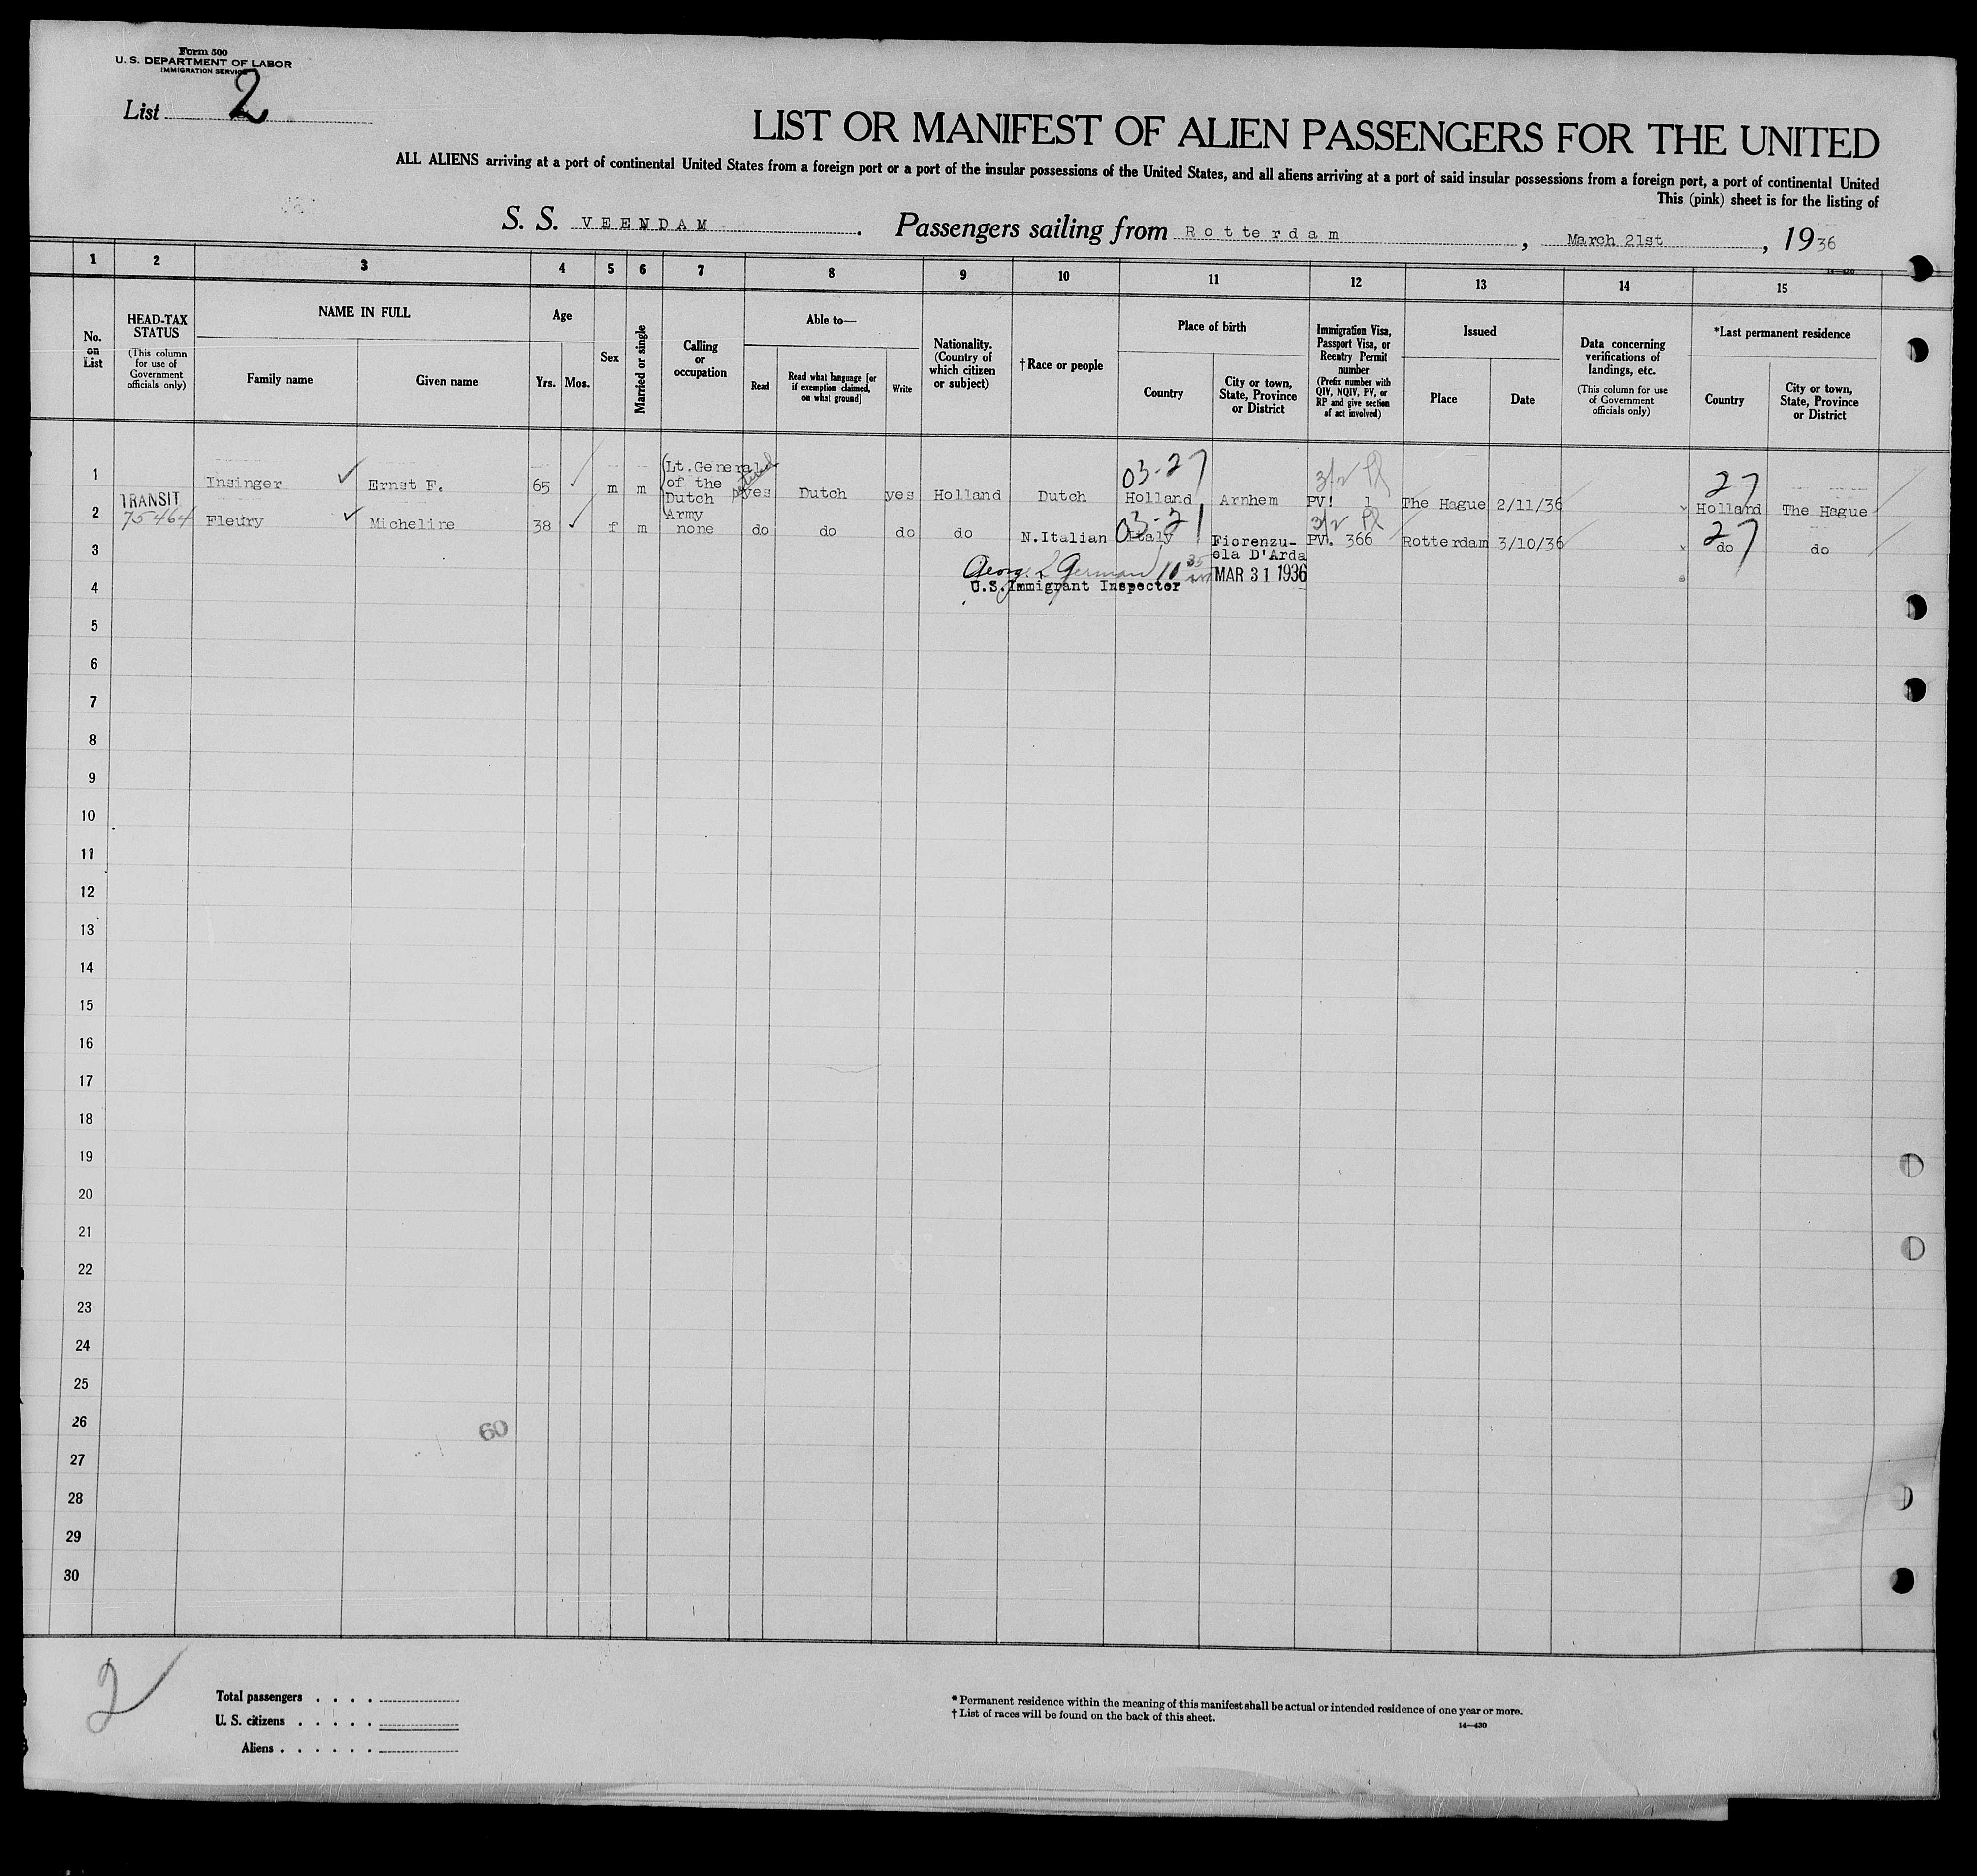 Form 500
U. S. DEPARTMENT OF LABOR
IMMIGRATION SERVICE
List 2
LIST OR MANIFEST OF ALIEN PASSENGERS FOR THE UNITED
ALL ALIENS arriving at a port of continental United States from a foreign port or a port of the insular possessions of the United States, and all aliens arriving at a port of said insular possessions from a foreign port, a port of continental United
This (pink) sheet is for the listing of
S. S. VEENDAM. Passengers sailing from Rotterdam, March 21st, 1936
14—430
1 2 3 4 5 6 7 8 9 10 11 12 13 14 15
No. on List
HEAD-TAX STATUS
(This column for use of Government officials only)
NAME IN FULL
Family name
Given name
Age
Yrs. Mos.
Sex
Married or single
Calling or occupation
Able to—
Read
Read what language [or if exemption claimed, on what ground]
Write
Nationality. (Country of which citizen or subject)
†Race or people
Place of birth
Country
City or town, State, Province or District
Immigration Visa, Passport Visa, or Reentry Permit number
(Prefix number with QIV, NQIV, PV, or RP and give section of act involved)
Issued
Place
Date
Data concerning verifications of landings, etc.
(This column for use of Government officials only)
*Last permanent residence
Country
City or town, State, Province or District
03-27 3/2 27
1 Insinger ✓ Ernst F. 65 ✓ m m (Lt.General of the Dutch Army retired yes Dutch yes Holland Dutch Holland Arnhem PV! 1 The Hague 2/11/36 Holland The Hague
TRANSIT
75464
03-21 3/2 27
2 Fleury ✓ Micheline 38 ✓ f m none do do do do N.Italian Italy Fiorenzu-ola D'Arda PV. 366 Rotterdam 3/10/36 do do
3
George L German 10 35 am MAR 31 1936
U.S.Immigrant Inspector
4
5
6
7
8
9
10
11
12
13
14
15
16
17
18
19
20
21
22
23
24
25
26
60
27
28
29
30
2
Total passengers . . . .
U. S. citizens . . . . .
Aliens . . . . . .
* Permanent residence within the meaning of this manifest shall be actual or intended residence of one year or more.
† List of races will be found on the back of this sheet.
14—430